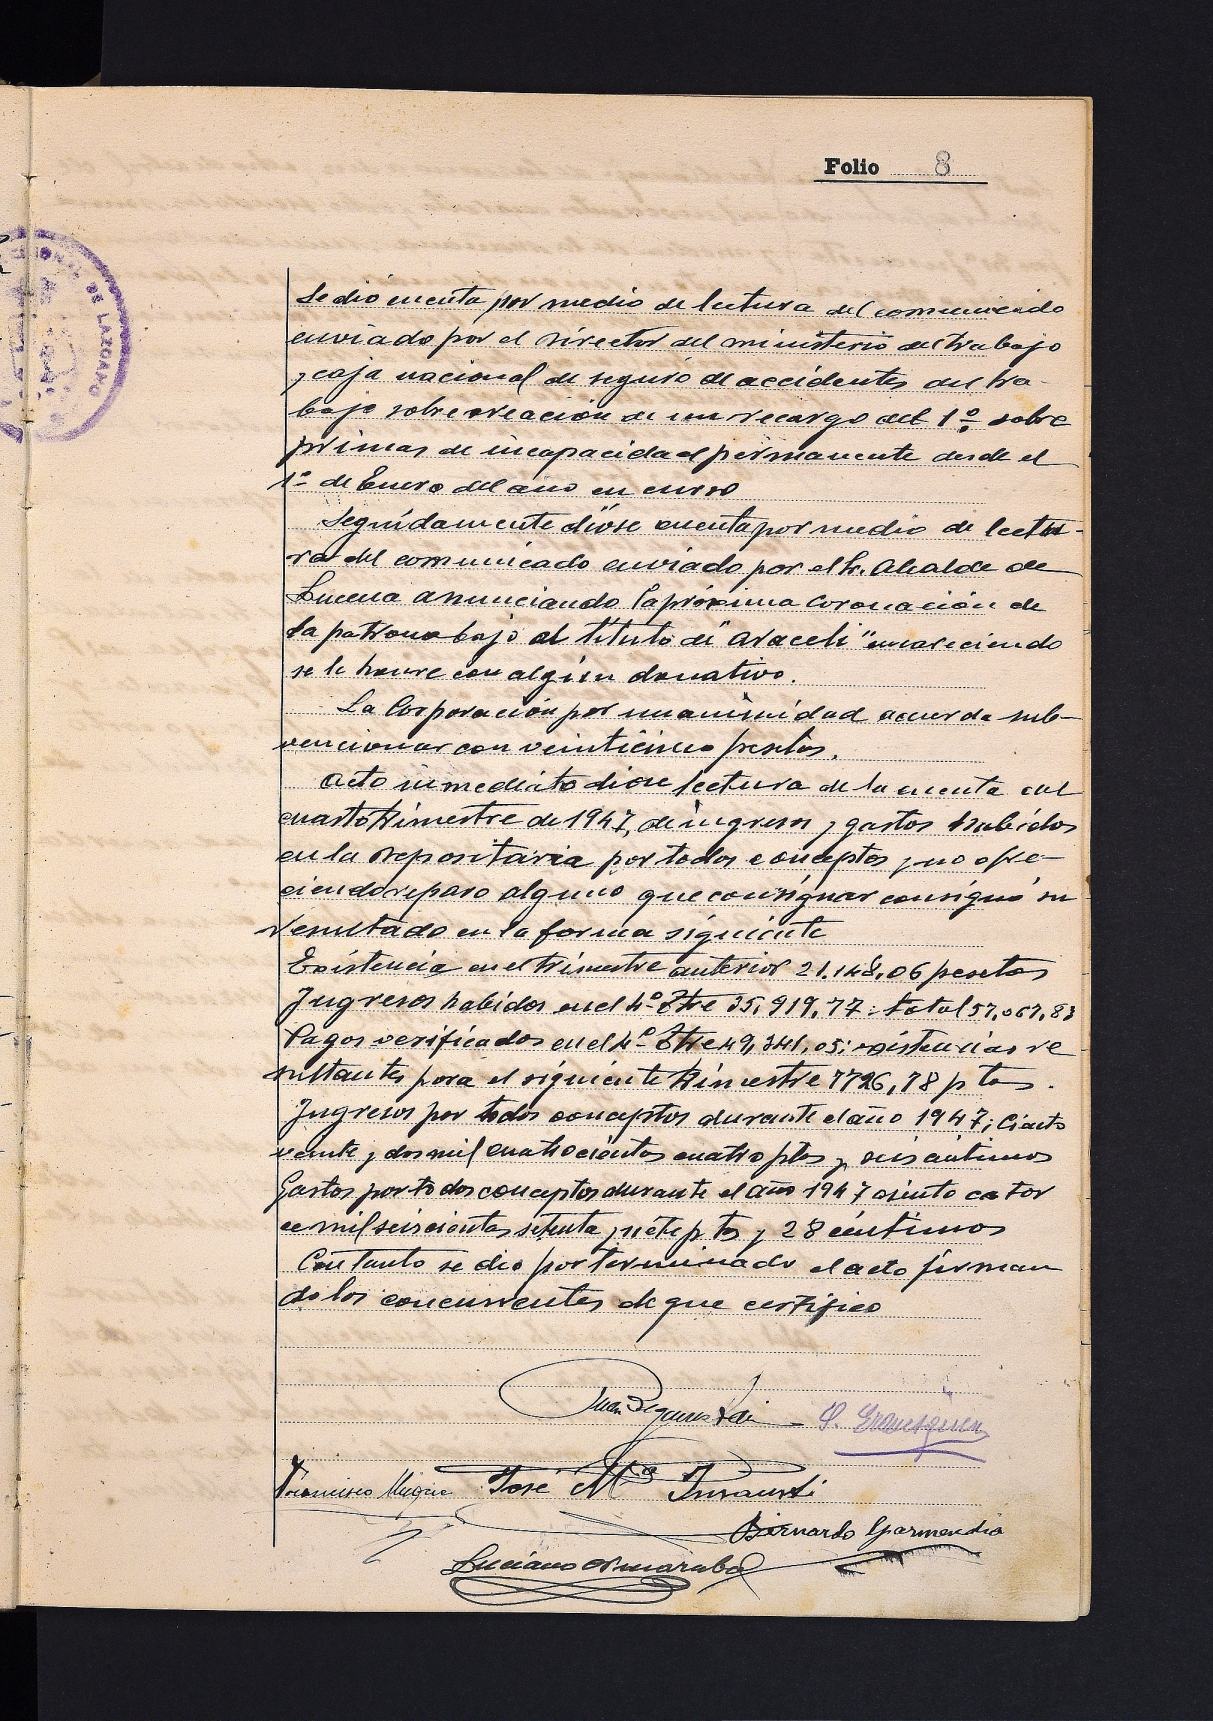 Folio 8
DE LAZCANO
Se dió cuenta por medio de lectura del comunicado
enviado por el Director del ministerio del trabajo
y caja nacional de seguro de accidentes del tra-
bajo sobre creación de un recargo del 1º sobre
primas de incapacidad permanente desde el
1º de Enero del año en curso
Seguidamente dióse cuenta por medio de lectu-
ra del comunicado enviado por el Sr. Alcalde de
Lucena anunciando la próxima coronación de
la patrona bajo el titulo de "Araceli" encareciendo
se le honre con algún donativo.
La Corporación por unanimidad acuerda sub-
vencionar con veinticinco pesetas.
Acto inmediato dióse lectura de la cuenta del
cuarto trimestre de 1947, de ingresos y gastos habidos
en la Depositaria por todos conceptos y no ofre-
ciendo reparo alguno que consignar consignó su
resultado en la forma siguiente
Existencia en el trimestre anterior 21.148,06 pesetas
Ingresos habidos en el 4º Ztre 35,919,77: total 57,067,83
Pagos verificados en el 4º Ztre 49,341,05; existencias re
sultantes para el siguiente trimestre 7726,78 ptas.
Ingresos por todos conceptos durante el año 1947; Ciento
veinte y dos mil cuatrocientas cuatro ptas y seis céntimos
Gastos por todos conceptos durante el año 1947 ciento cator
ce mil seiscientas setenta y siete ptas y 28 céntimos
Con tanto se dio por terminado el acto firman
do los concurrentes de que certifico
Juan
Francisco José Mª
Bernardo Garmendia
Luciano